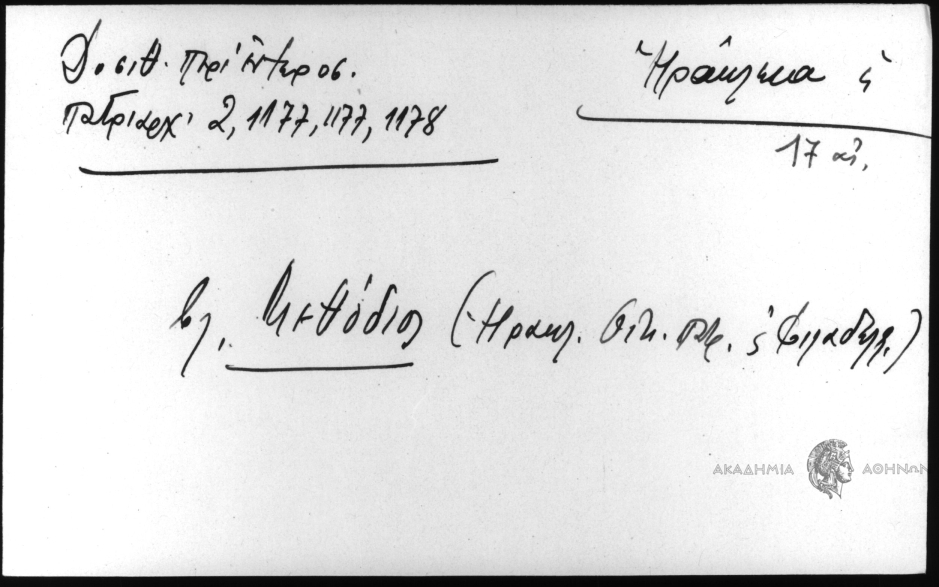 Δοσιθ. περί Ιεροσ.
πατριαρχ. 2, 1177, 1177, 1178
Ἡράκλεια ἡ
17 αἰ.
βλ. Μεθόδιος (Ἡρακλ. Οἰκ. πτρ. ἡ Φιλαδελφ.)
ΑΚΑΔΗΜΙΑ ΑΘΗΝΩΝ